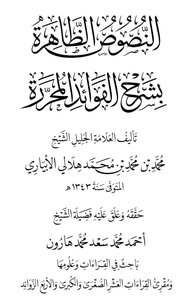 النُّصُوصُ الظَّاهِرَة
بِشَرْحِ الفَوَائِدِ المُحَرَّرَة
تَأْلِيفُ العَلَّامَةِ الجَلِيلِ الشَّيْخِ
مُحَمَّد بْن مُحَمَّد بْن مُحَمَّد هِلَالِي الأَبْيَارِي
المُتَوَفَّى سَنَةَ ١٣٤٣هـ
حَقَّقَهُ وَعَلَّقَ عَلَيْهِ فَضِيلَةُ الشَّيْخِ
أَحْمَد مُحَمَّد سَعْد مُحَمَّد هَارُون
بَاحِثٌ فِي القِرَاءَاتِ وَعُلُومِهَا
وَمُقْرِئُ القِرَاءَاتِ العَشْرِ الصُّغْرَى وَالكُبْرَى وَالأَرْبَعِ الزَّوَائِدِ